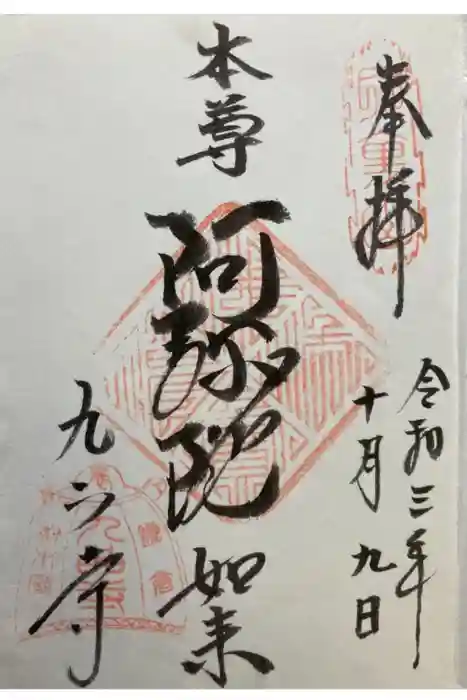 奉拝
令和三年
十月九日
本尊
阿弥陀如来
九品寺